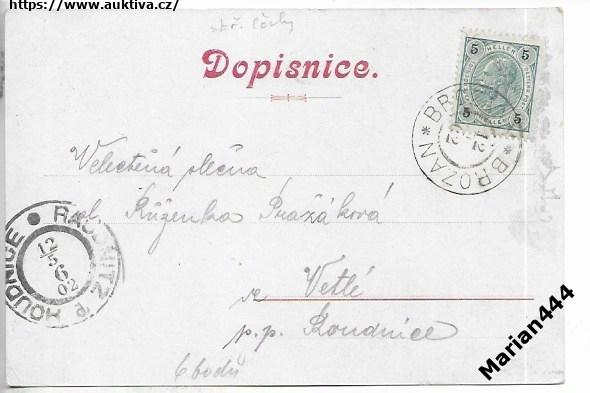 https://www.auktiva.cz/
stř. Čechy
Dopisnice.
5 HELLER 5
5 HELLER 5
BROZAN * BROZAN *
Velectěná slečna
sl. Růženka Pražáková
ve Vetlé
p. p. Roudnice
6 bodů
RAUDNITZ
ROUDNICE
12/5
6
02
Marian444